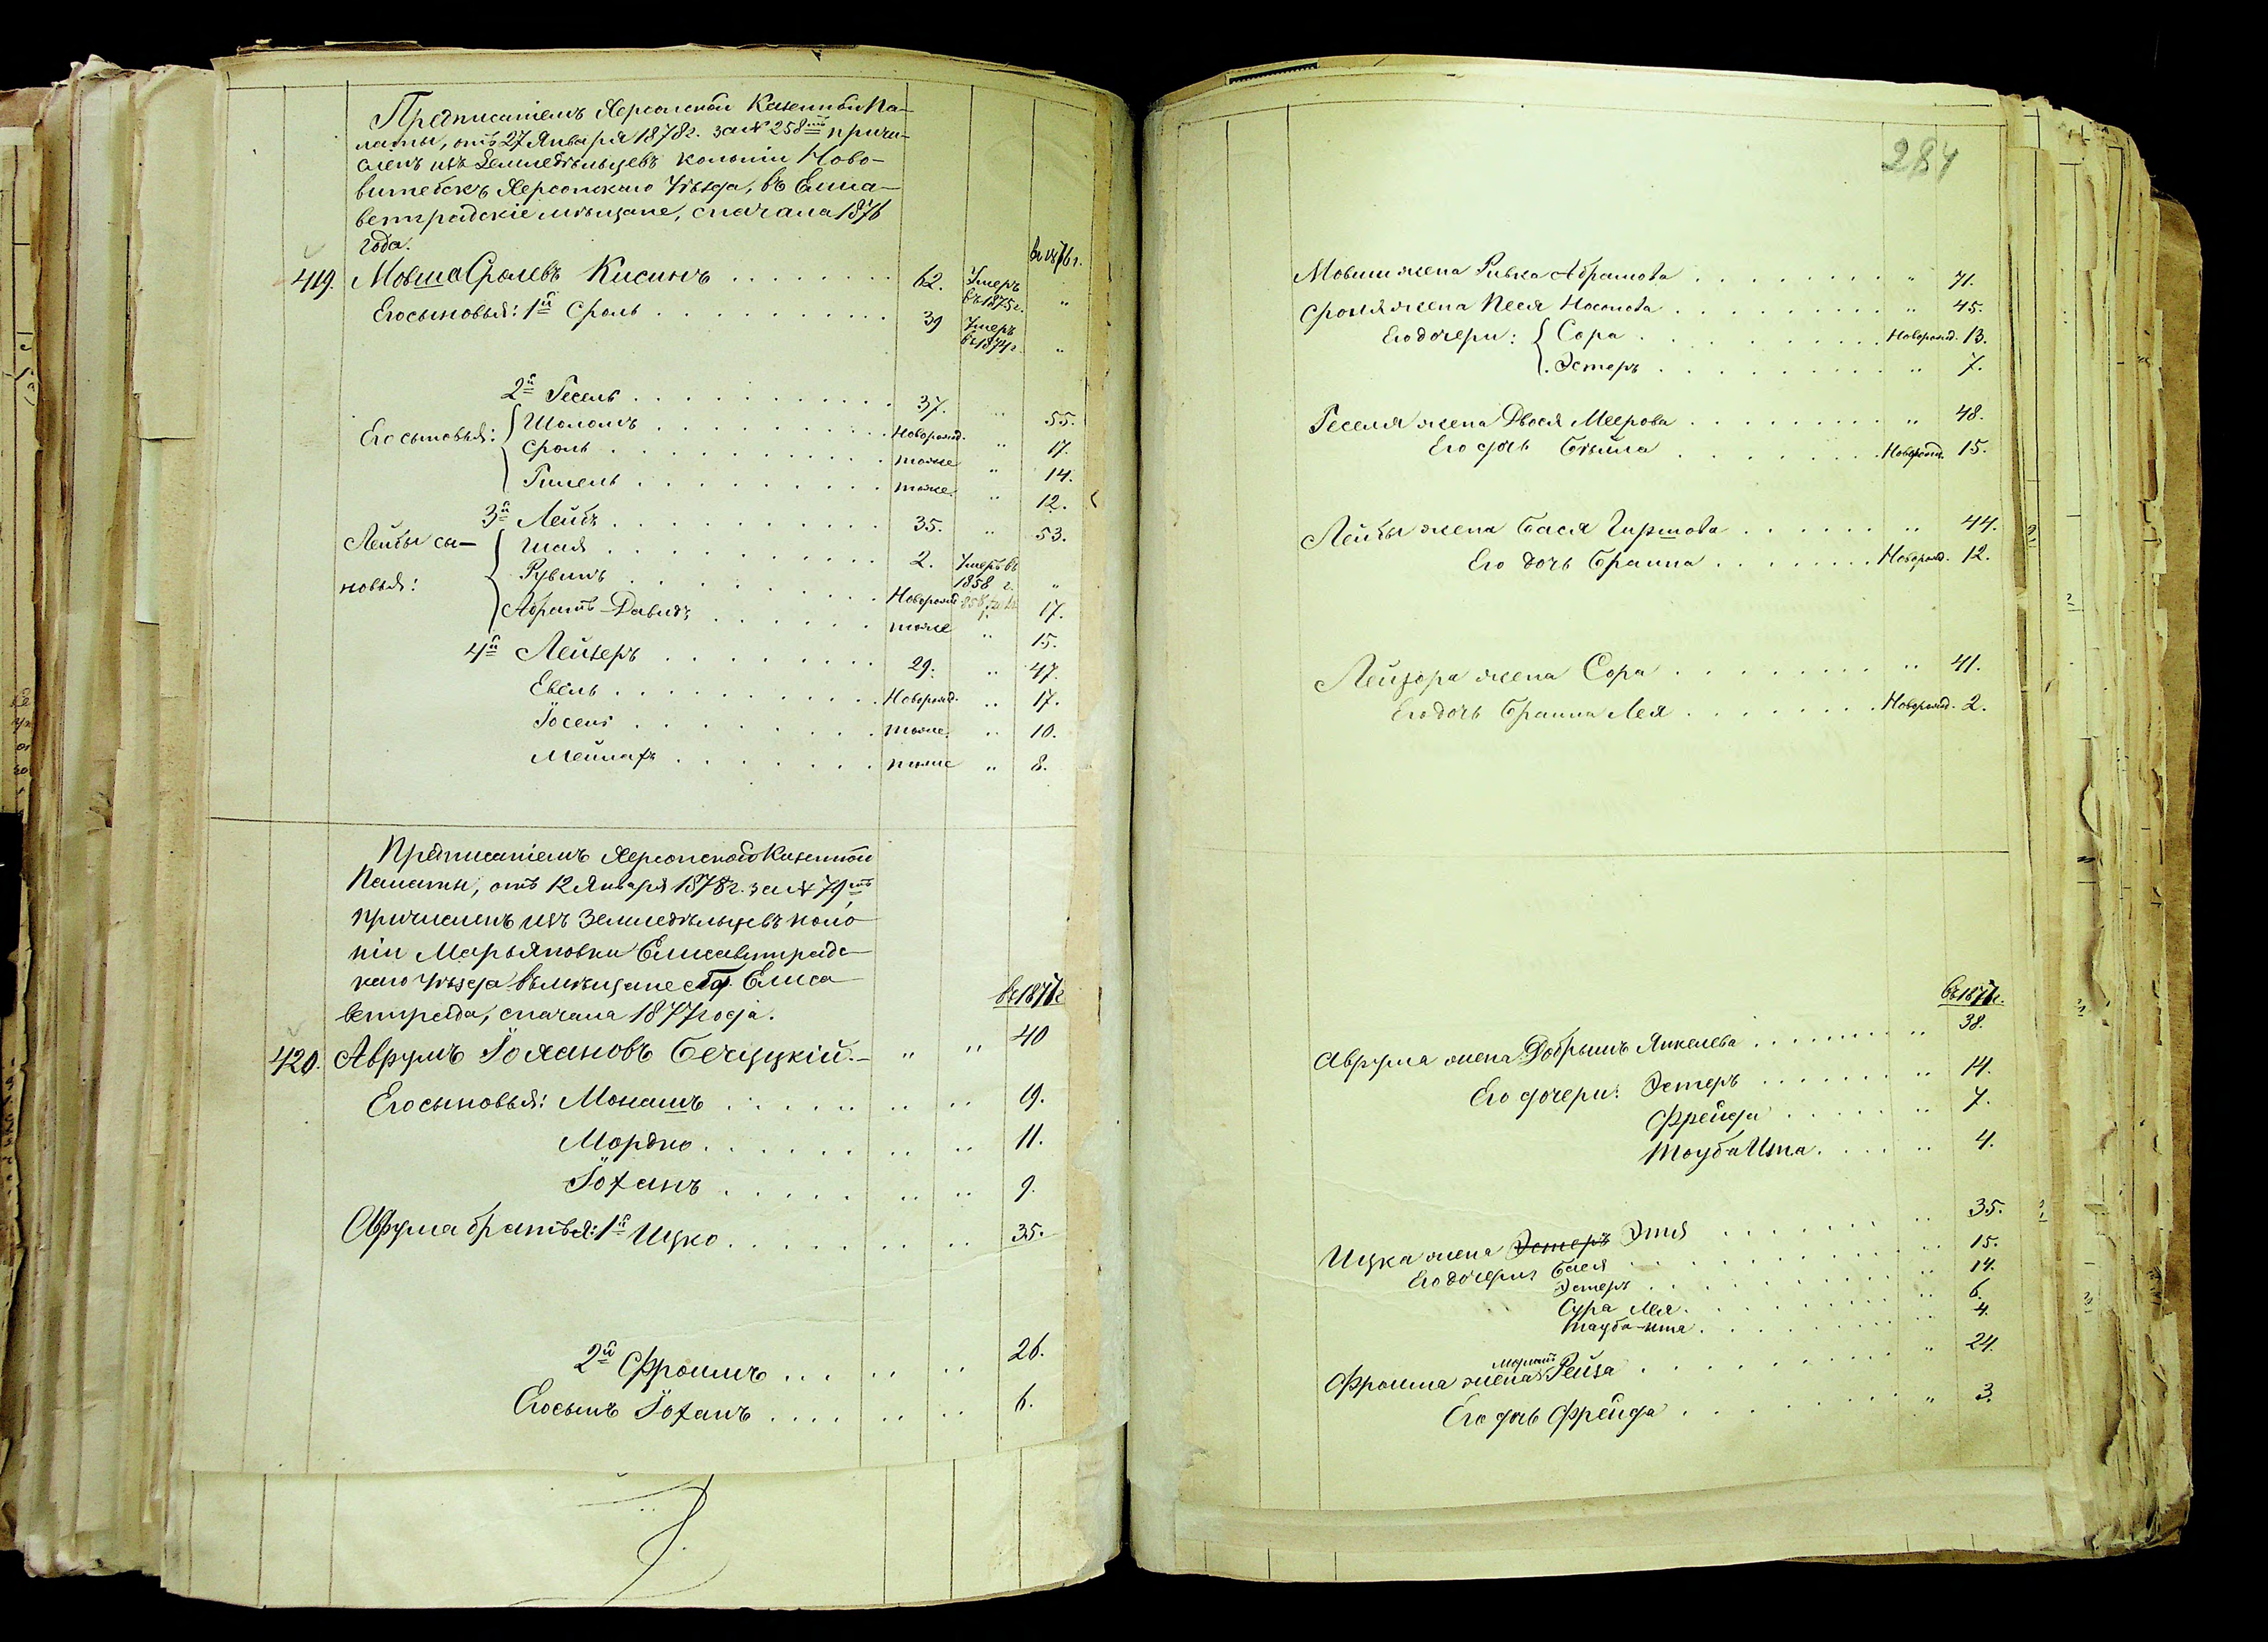 Предписаніемъ Херсонской Казенной Па-
латы, отъ 27 Января 1878 г. за № 258мъ причи-
сленъ изъ Земледѣльцевъ колоніи Ново-
витебскъ Херсонскаго Уѣзда, въ Елиса-
ветградскіе мѣщане, съ начала 1876
года.
въ 1876 г.
419. Мовша Сролевъ Кисинъ 62. Умеръ въ 1875 г. "
Его сыновья: 1й Сроль 39 Умеръ въ 1874 г. "
2й Гесель 37. " 55.
Его сыновья: Шоломъ Новорожд. " 17.
Сроль тоже " 14.
Гилель тоже. " 12.
3й Лейбъ 35. " 53.
Лейбы сы-
новья:
Шая 2. Умеръ въ 1858 г. "
Рувинъ Новорожд. 17.
Абрамъ-Давидъ тоже " 15.
4й Лейзеръ 29. " 47.
Евель Новорожд. " 17.
Іосель тоже. " 10.
Мейлахъ тоже " 8.
Предписаніемъ Херсонской Казенной
Палаты, отъ 12 Января 1878 г. за № 79мъ,
причисленъ изъ Земледѣльцевъ коло
ніи Марьяновки Елисаветградс-
каго Уѣзда въ мѣщане Гор. Елиса
ветграда, съ начала 1877 года.
въ 1877 г.
420. Аврумъ Іохановъ Бечуцкій.- " " 40
Его сыновья: Монашъ " " 19.
Мордко " " 11.
Іоханъ " " 9.
Аврума братья: 1й Ицко " " 35.
2й Фроимъ " " 26.
Его сынъ Іоханъ " " 6.
284
Мовши жена Ривка Абрамова " 71.
Сроля жена Песя Носонова " 45.
Его дочери: Сора Новорожд. 13.
Эстеръ " 7.
Геселя жена Двося Меерова " 48.
Его дочь Бейла Новорожд. 15.
Лейбы жена Бася Гиршова " 44.
Его дочь Браина Новорожд. 12.
Лейзора жена Сора " 41.
Его дочь Браина Лея Новорожд. 2.
въ 1877 г.
Аврума жена Добрышъ Янкелева " 38.
Его дочери: Эстеръ " 14.
Фрейда " 7.
Тоуба Ита " 4.
Ицка жена Эстеръ Этя " 35.
Его дочери Бася " 15.
Эстеръ " 14.
Сура Лея " 6.
Тауба-Ита " 4.
Фроима жена Рейза " 24.
Его дочь Фрейда " 3.